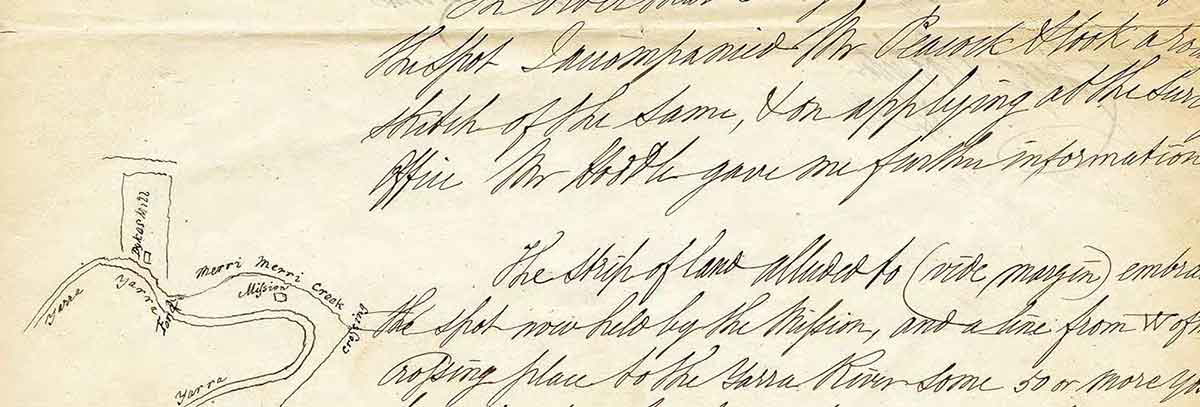 the spot I accompanied Mr Peacock & took a ro
sketch of the same, & on applying at the Surv
Office Mr Hoddle gave me further information
The strip of land alluded to (vide margin) embra
the spot now held by the Mission, and a line from W of
Crossing place to the Yarra River some 50 or more ya
Dykes Mill
Merri Merri Creek
Mission
Yarra
Yarra
Ford
Crossing
Yarra